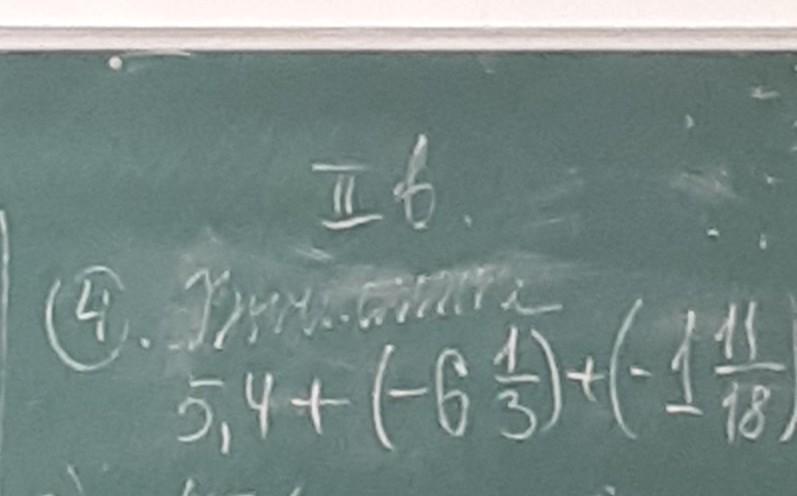 II в.
④.
5,4 + (-6 1/3) + (-1 11/18)